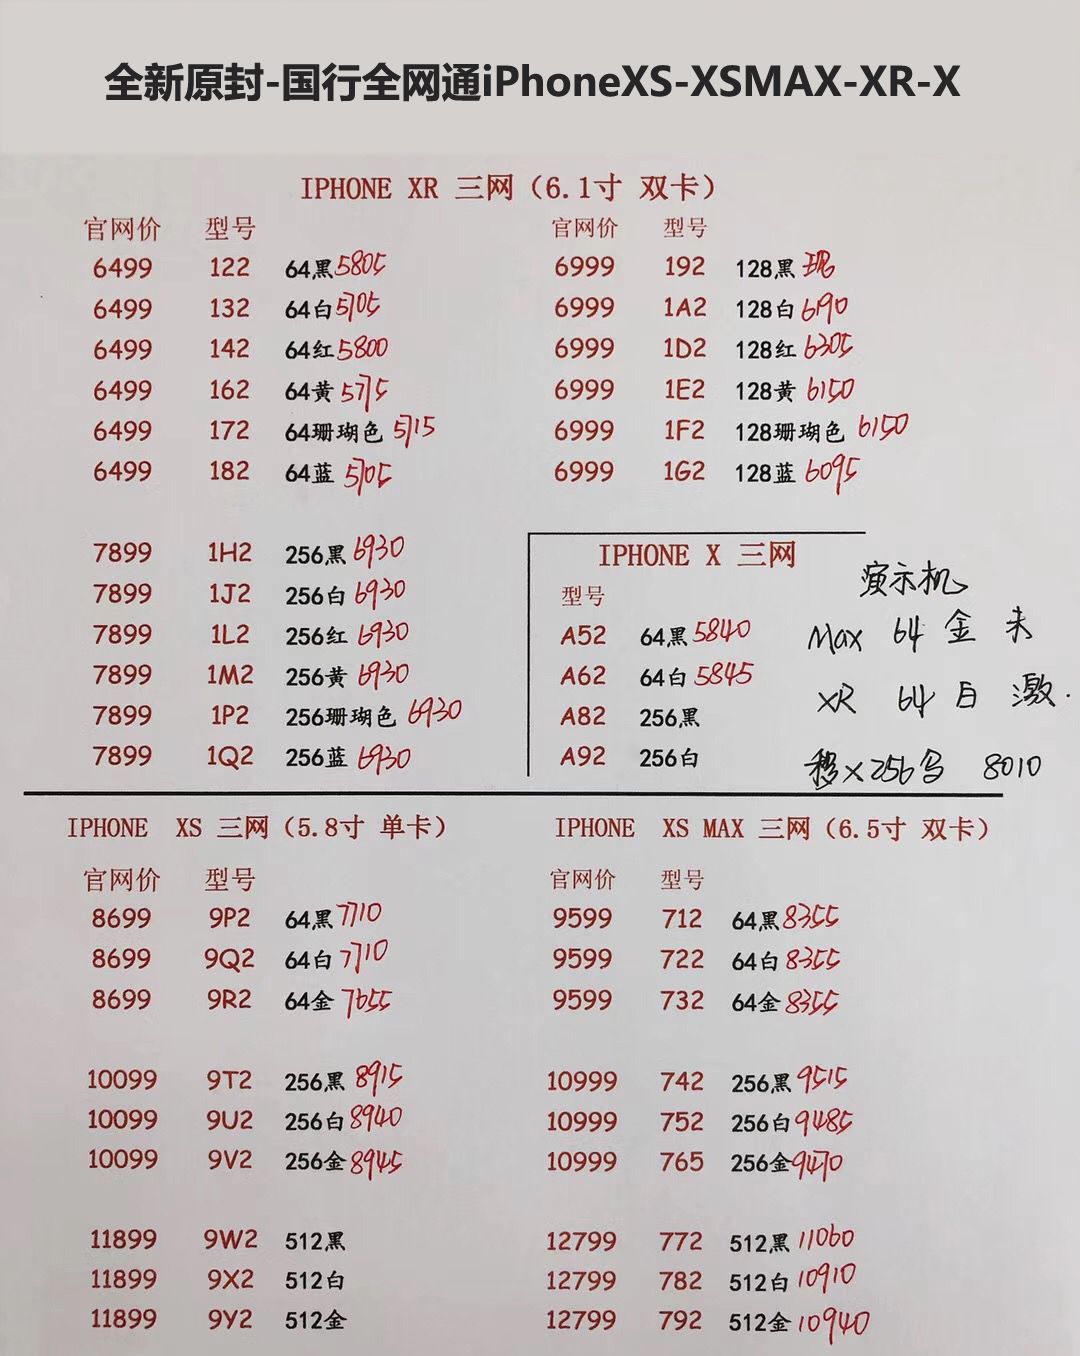 全新原封-国行全网通iPhoneXS-XSMAX-XR-X
IPHONE XR 三网（6.1寸 双卡）
官网价 型号 官网价 型号
6499 122 64黑 5805 6999 192 128黑 现
6499 132 64白 5705 6999 1A2 128白 6190
6499 142 64红 5800 6999 1D2 128红 6305
6499 162 64黄 5775 6999 1E2 128黄 6150
6499 172 64珊瑚色 5715 6999 1F2 128珊瑚色 6150
6499 182 64蓝 5705 6999 1G2 128蓝 6095
7899 1H2 256黑 6930
7899 1J2 256白 6930
7899 1L2 256红 6930
7899 1M2 256黄 6930
7899 1P2 256珊瑚色 6930
7899 1Q2 256蓝 6930
IPHONE X 三网
型号
A52 64黑 5840
A62 64白 5845
A82 256黑
A92 256白
演示机
Max 64 金 未
XR 64 白 激.
移X256 8010
IPHONE XS 三网（5.8寸 单卡）
官网价 型号
8699 9P2 64黑 7710
8699 9Q2 64白 7710
8699 9R2 64金 7655
10099 9T2 256黑 8915
10099 9U2 256白 8940
10099 9V2 256金 8945
11899 9W2 512黑
11899 9X2 512白
11899 9Y2 512金
IPHONE XS MAX 三网（6.5寸 双卡）
官网价 型号
9599 712 64黑 8355
9599 722 64白 8355
9599 732 64金 8355
10999 742 256黑 9515
10999 752 256白 9485
10999 765 256金 9470
12799 772 512黑 11060
12799 782 512白 10910
12799 792 512金 10940